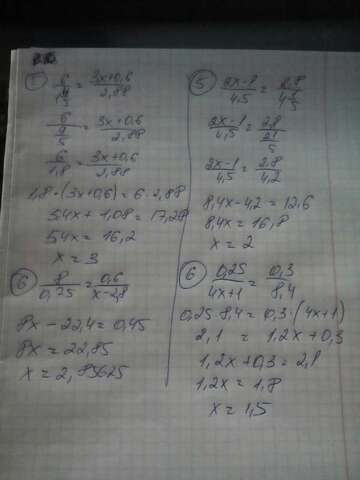 5) 6/(1 4/5) = (3x+0,6)/2,88
6/(9/5) = (3x+0,6)/2,88
6/1,8 = (3x+0,6)/2,88
1,8·(3x+0,6) = 6·2,88
5,4x + 1,08 = 17,28
5,4x = 16,2
x = 3
6) 8/0,75 = 0,6/(x-2,8)
8x - 22,4 = 0,45
8x = 22,85
x = 2,85625
5) (2x-1)/4,5 = 2,8/(4 1/5)
(2x-1)/4,5 = 2,8/(21/5)
(2x-1)/4,5 = 2,8/4,2
8,4x - 4,2 = 12,6
8,4x = 16,8
x = 2
6) 0,25/(4x+1) = 0,3/8,4
0,25·8,4 = 0,3·(4x+1)
2,1 = 1,2x + 0,3
1,2x + 0,3 = 2,1
1,2x = 1,8
x = 1,5